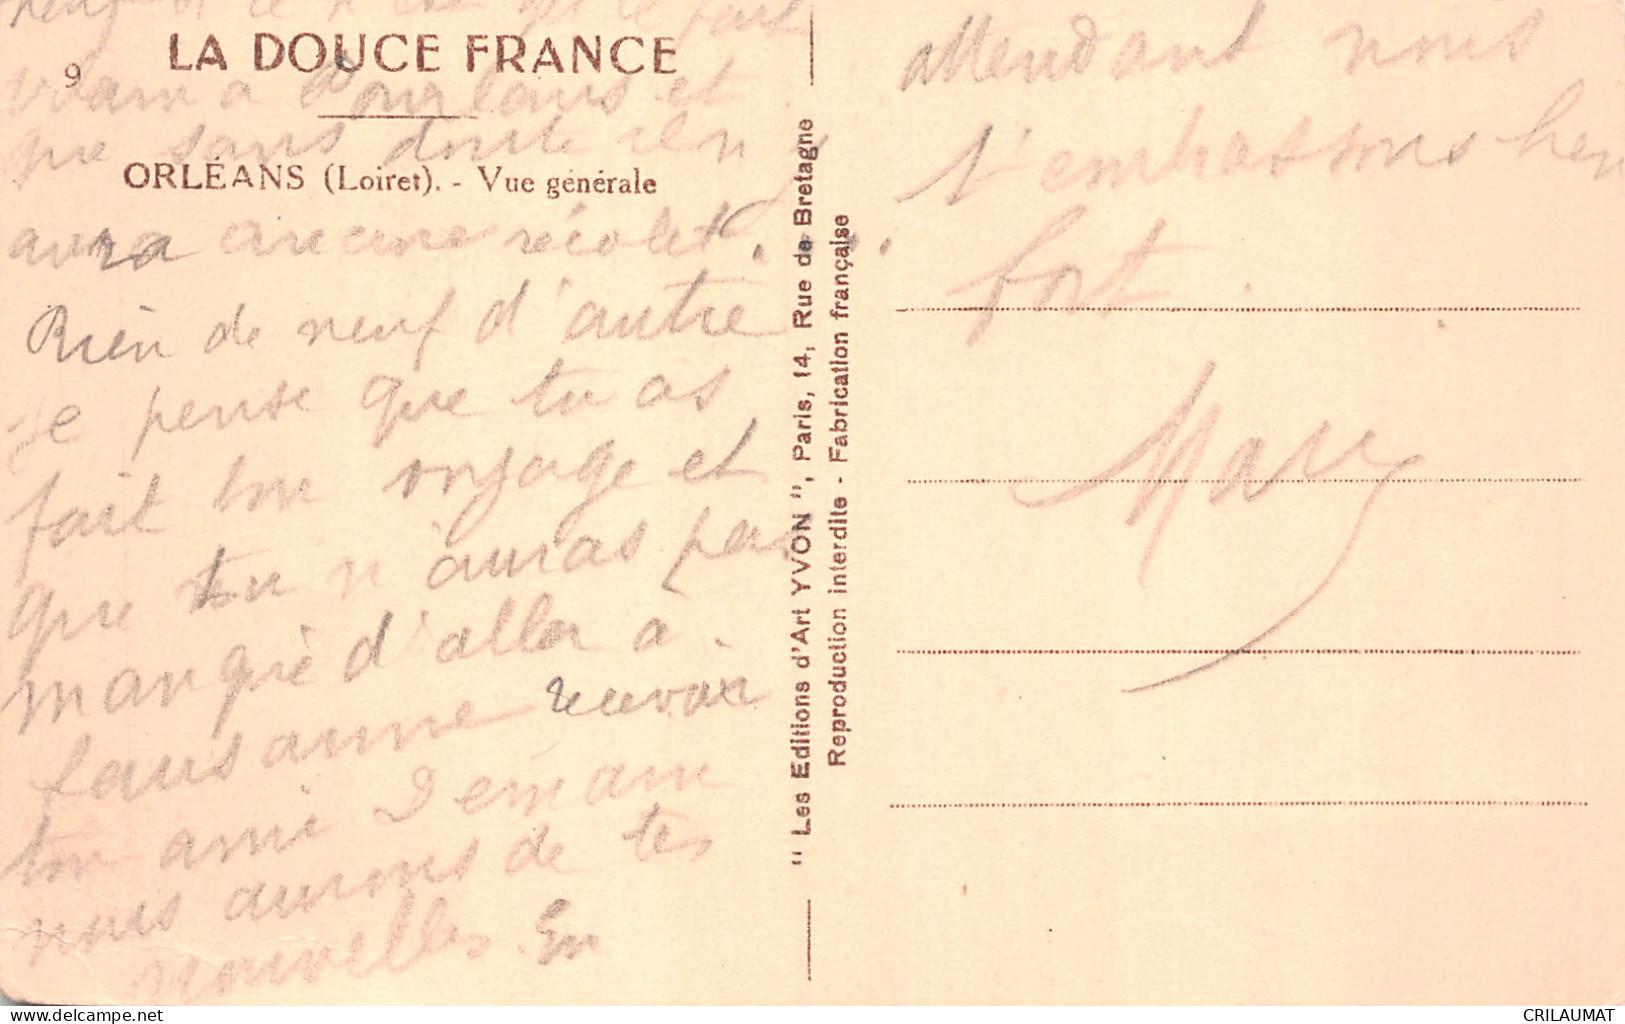 neuf si ce n'est qu'il fait
LA DOUCE FRANCE
9
et
que sans doute il n'y
ORLÉANS (Loiret). - Vue générale
aura aucune récolte...
Rien de neuf d'autre
je pense que tu as
fait bon voyage et
que tu n'auras pas
manqué d'aller à
Lausanne revoir
ton ami Demain
nous aurons de tes
nouvelles. En
attendant nous
t'embrassons bien
fort.
Mary
"Les Editions d'Art YVON", Paris, 14, Rue de Bretagne
Reproduction interdite - Fabrication française
delcampe.net
CRILAUMAT